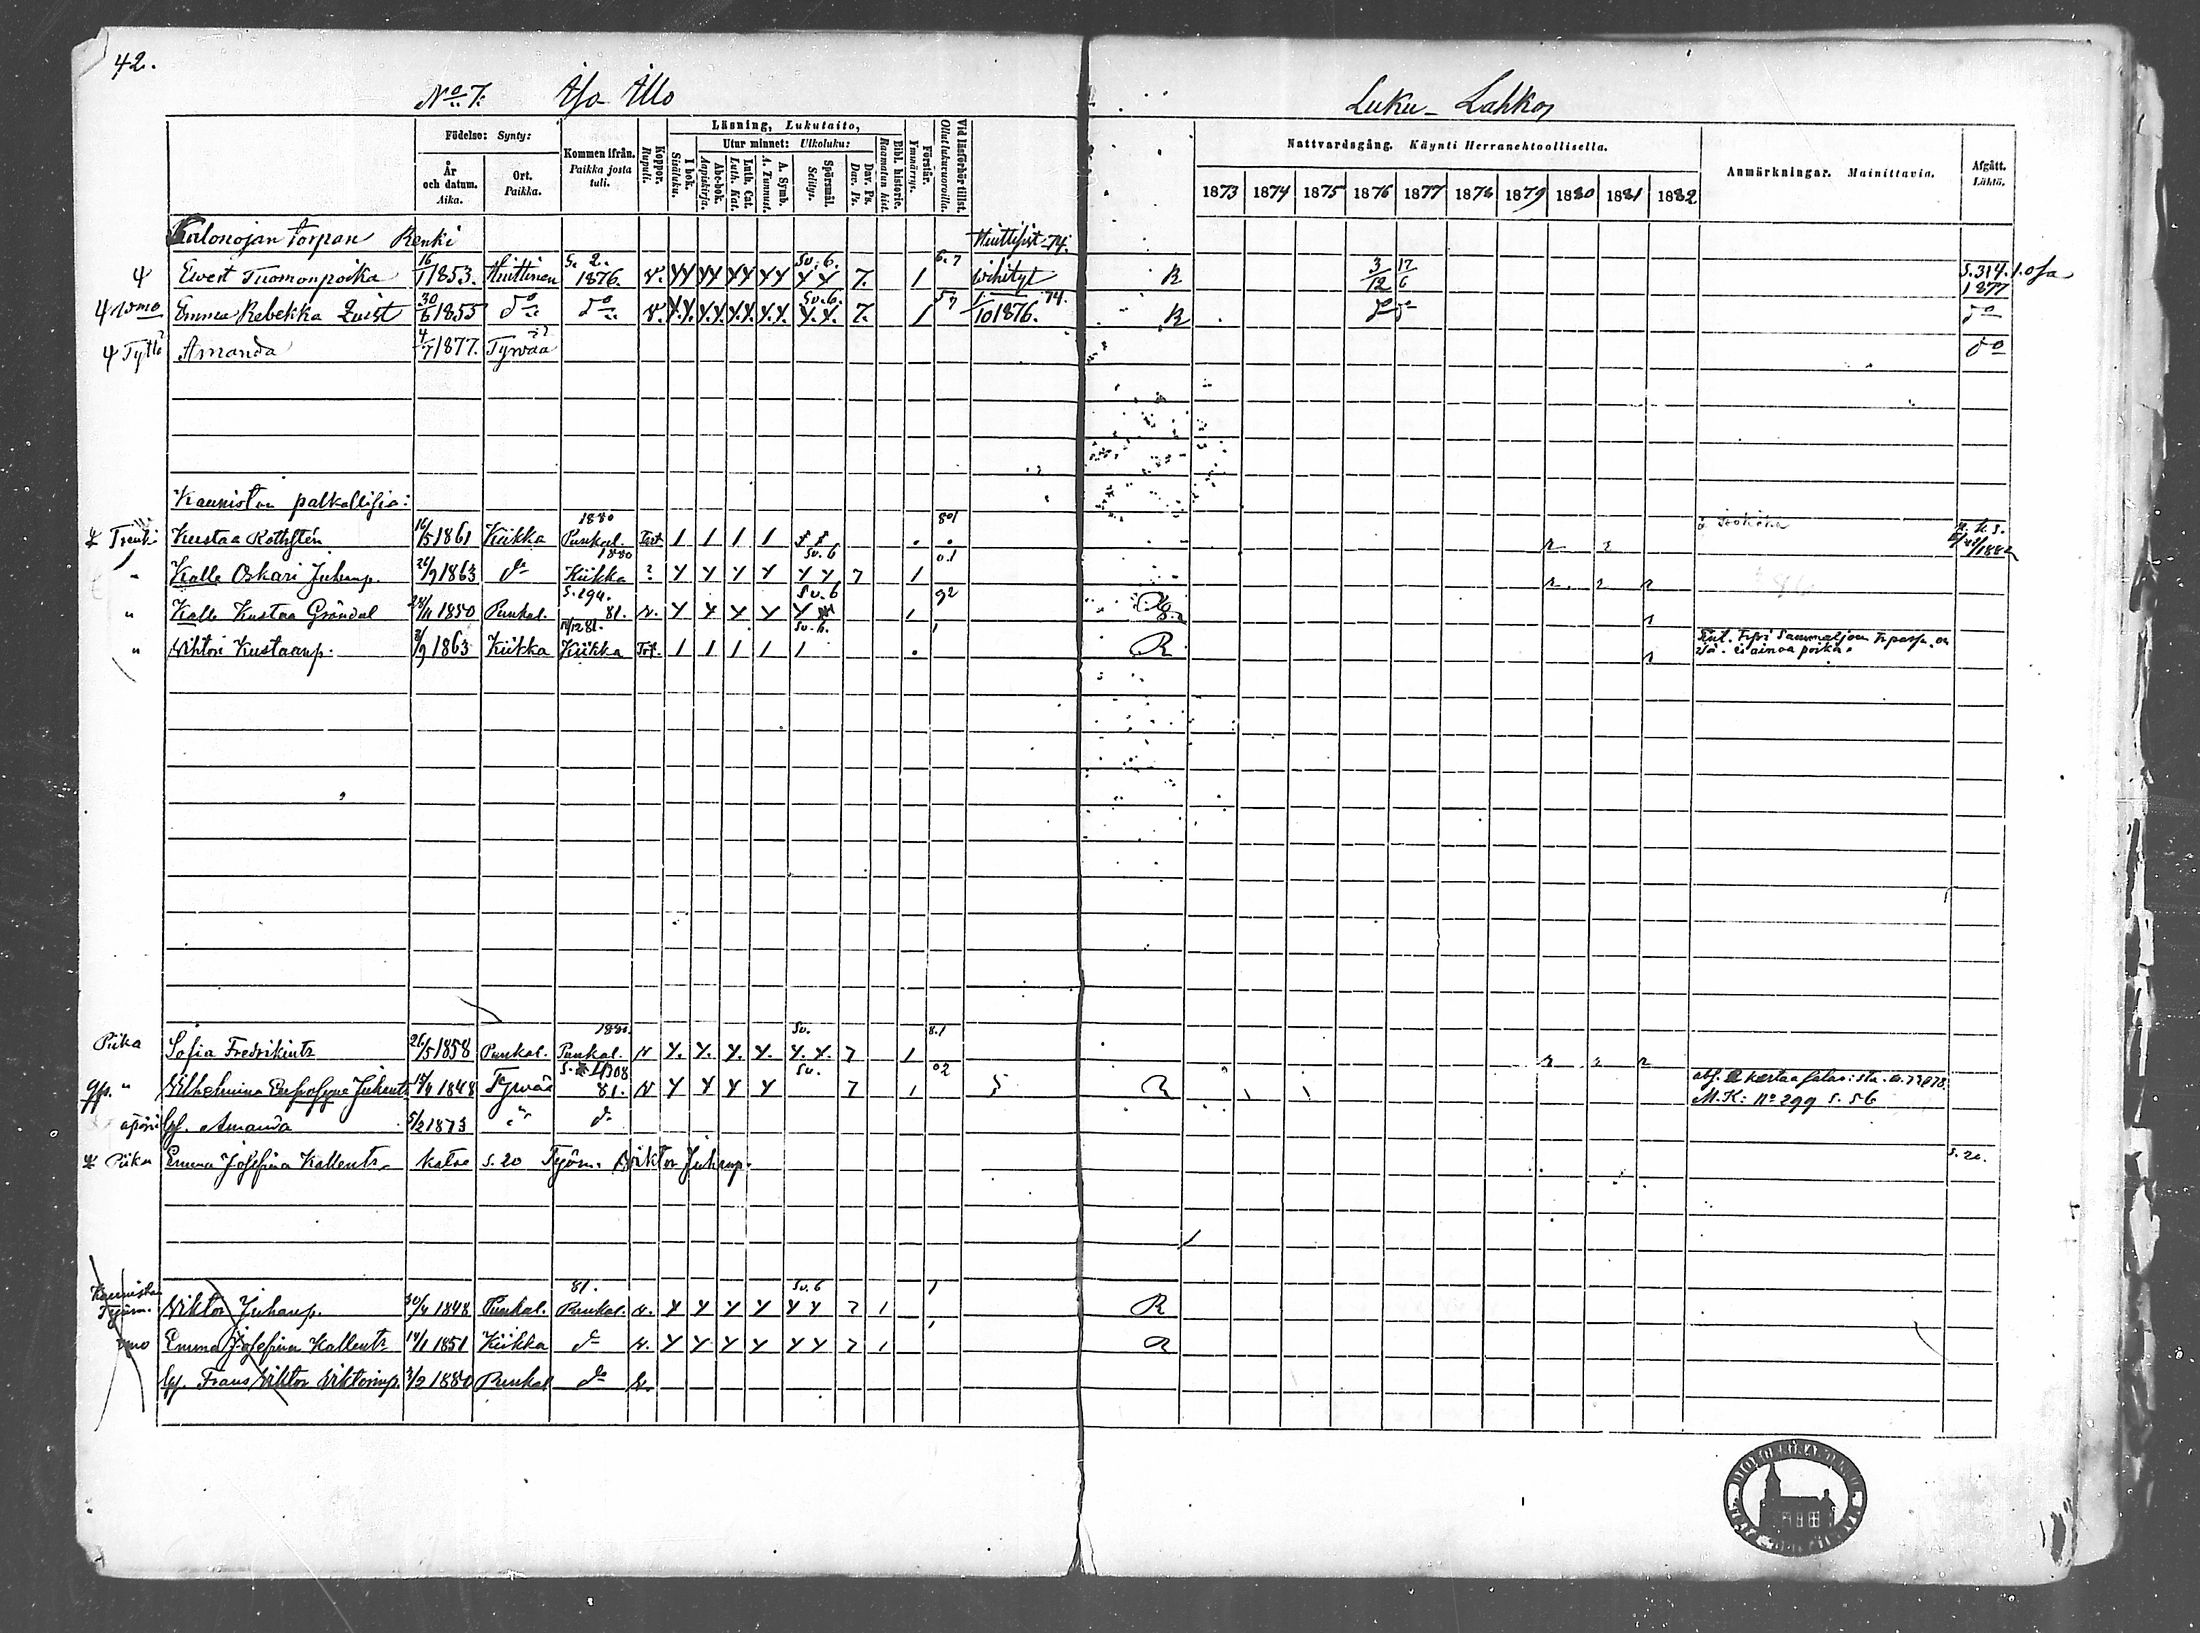 42.
No 7. Iso Illo
Luku-Lahko
Födelse: Synty:
År och datum. Aika.
Ort. Paikka.
Kommen ifrån. Paikka josta tuli.
Koppor. Rupuli.
Läsning, Lukutaito,
I bok. Sisäluku.
Utur minnet: Ulkoluku:
Abc-bok. Aapiskirja.
Luth. Cat. Luth. Kat.
A. Symb. A. Tunnust.
Spörsmål. Selitys.
Dav. Ps. Dav. Ps.
Bibl. historie. Raamatun hist.
Förstår. Ymmärrys.
Vid läsförhör tillst. Ollut lukuvuoroilla.
Nattvardsgång. Käynti Herranehtoollisella.
1873 1874 1875 1876 1877 1878 1879 1880 1881 1882
Anmärkningar. Mainittavia.
Afgått. Lähtö.
Kalonojan torpan Renki Huittisist 74.
Ewert Tuomonpoika 16/1 1853. Huittinen S. 2. 1876. v. YY YY YY YY Sv. 6. Y Y 7. 1 6.7 wihityt R 3/12 17/6 S. 314. I.osa 1877
Wmo Emma Rebekka Quist 30/6 1855 do do v. Y.Y. Y.Y. Y.Y. Y.Y. Sv. 6. Y.Y. 7. 1 57 1/10 1876. 74. R do do do
Tyttö Amanda 4/7 1877. Tyrvää do
Kauniston palkollisia:
Trenki Kustaa Rothstén 16/5 1861 Kiikka 1880 Punkal. 1 1 1 1 801 r r 1882
" Kalle Oskari Juhanp. 26/9 1863 do 1880 Kiikka ? Y Y Y Y Sv. 6 Y Y 7 1 0.1 r r r
" Kalle Kustaa Gröndal 28/11 1850 Punkal. S. 294. 81. v. Y Y Y Y Sv. 6 Y 1 92 r
" Wihtori Kustaanp. 3/9 1863 Kiikka 14/12 81. Kiikka 1 1 1 1 Sv. 6. 1 1 R r
ei ainoa poika.
Piika Sofia Fredrikintr 26/5 1858 Punkal. 1880. Punkal. v Y. Y. Y. Y. Sv. Y. Y. 7 1 8.1 r r r
" Wilhelmina Juhantr 14/4 1848 Tyrvää 81. v Y Y Y Y Sv. 7 1 02 5 R
M.K: No 299 s. 56
Amanda 5/2 1873 do
Piika Emma Josefina Kallentr. katso s. 20 Työm. Wiktor Juhanp. s. 20.
Kauniston Työm. Wiktor Juhanp. 30/4 1848 Punkal. 81. Punkal. v. Y Y Y Y Sv. 6 Y Y 7 1 1 R
vmo Emma Josefina Kallentr 14/11 1851 Kiikka do v. Y Y Y Y Y Y 7 1 R
Frans Wiktor Wiktorinp. 3/2 1880 Punkal do v.